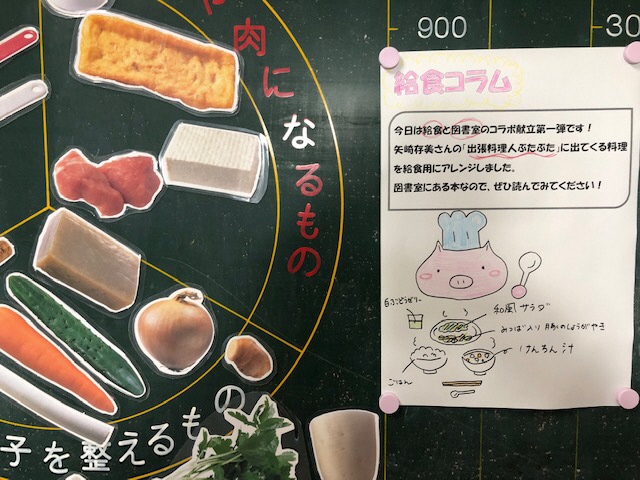 や肉になるもの
子を整えるもの
900
30
給食コラム
今日は給食と図書室のコラボ献立第一弾です！
矢崎存美さんの「出張料理人ぶたぶた」に出てくる料理
を給食用にアレンジしました。
図書室にある本なので、ぜひ読んでみてください！
和風サラダ
みつば入り豚のしょうがやき
けんちん汁
ごはん